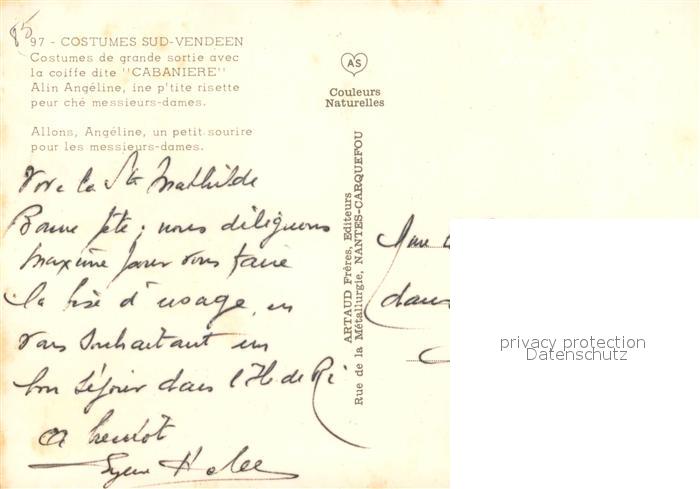 85
97 - COSTUMES SUD-VENDEEN
Costumes de grande sortie avec
la coiffe dite "CABANIERE"
Alin Angéline, ine p'tite risette
peur ché messieurs-dames.
Allons, Angéline, un petit sourire
pour les messieurs-dames.
Vive la Ste Mathilde
Bonne fête ; nous déléguons
Maxime pour vous faire
la bise d'usage, en
vous souhaitant un
bon séjour dans l'Ile de Ré
a bientôt
AS
Couleurs
Naturelles
ARTAUD Frères, Editeurs
Rue de la Métallurgie, NANTES-CARQUEFOU
privacy protection
Datenschutz